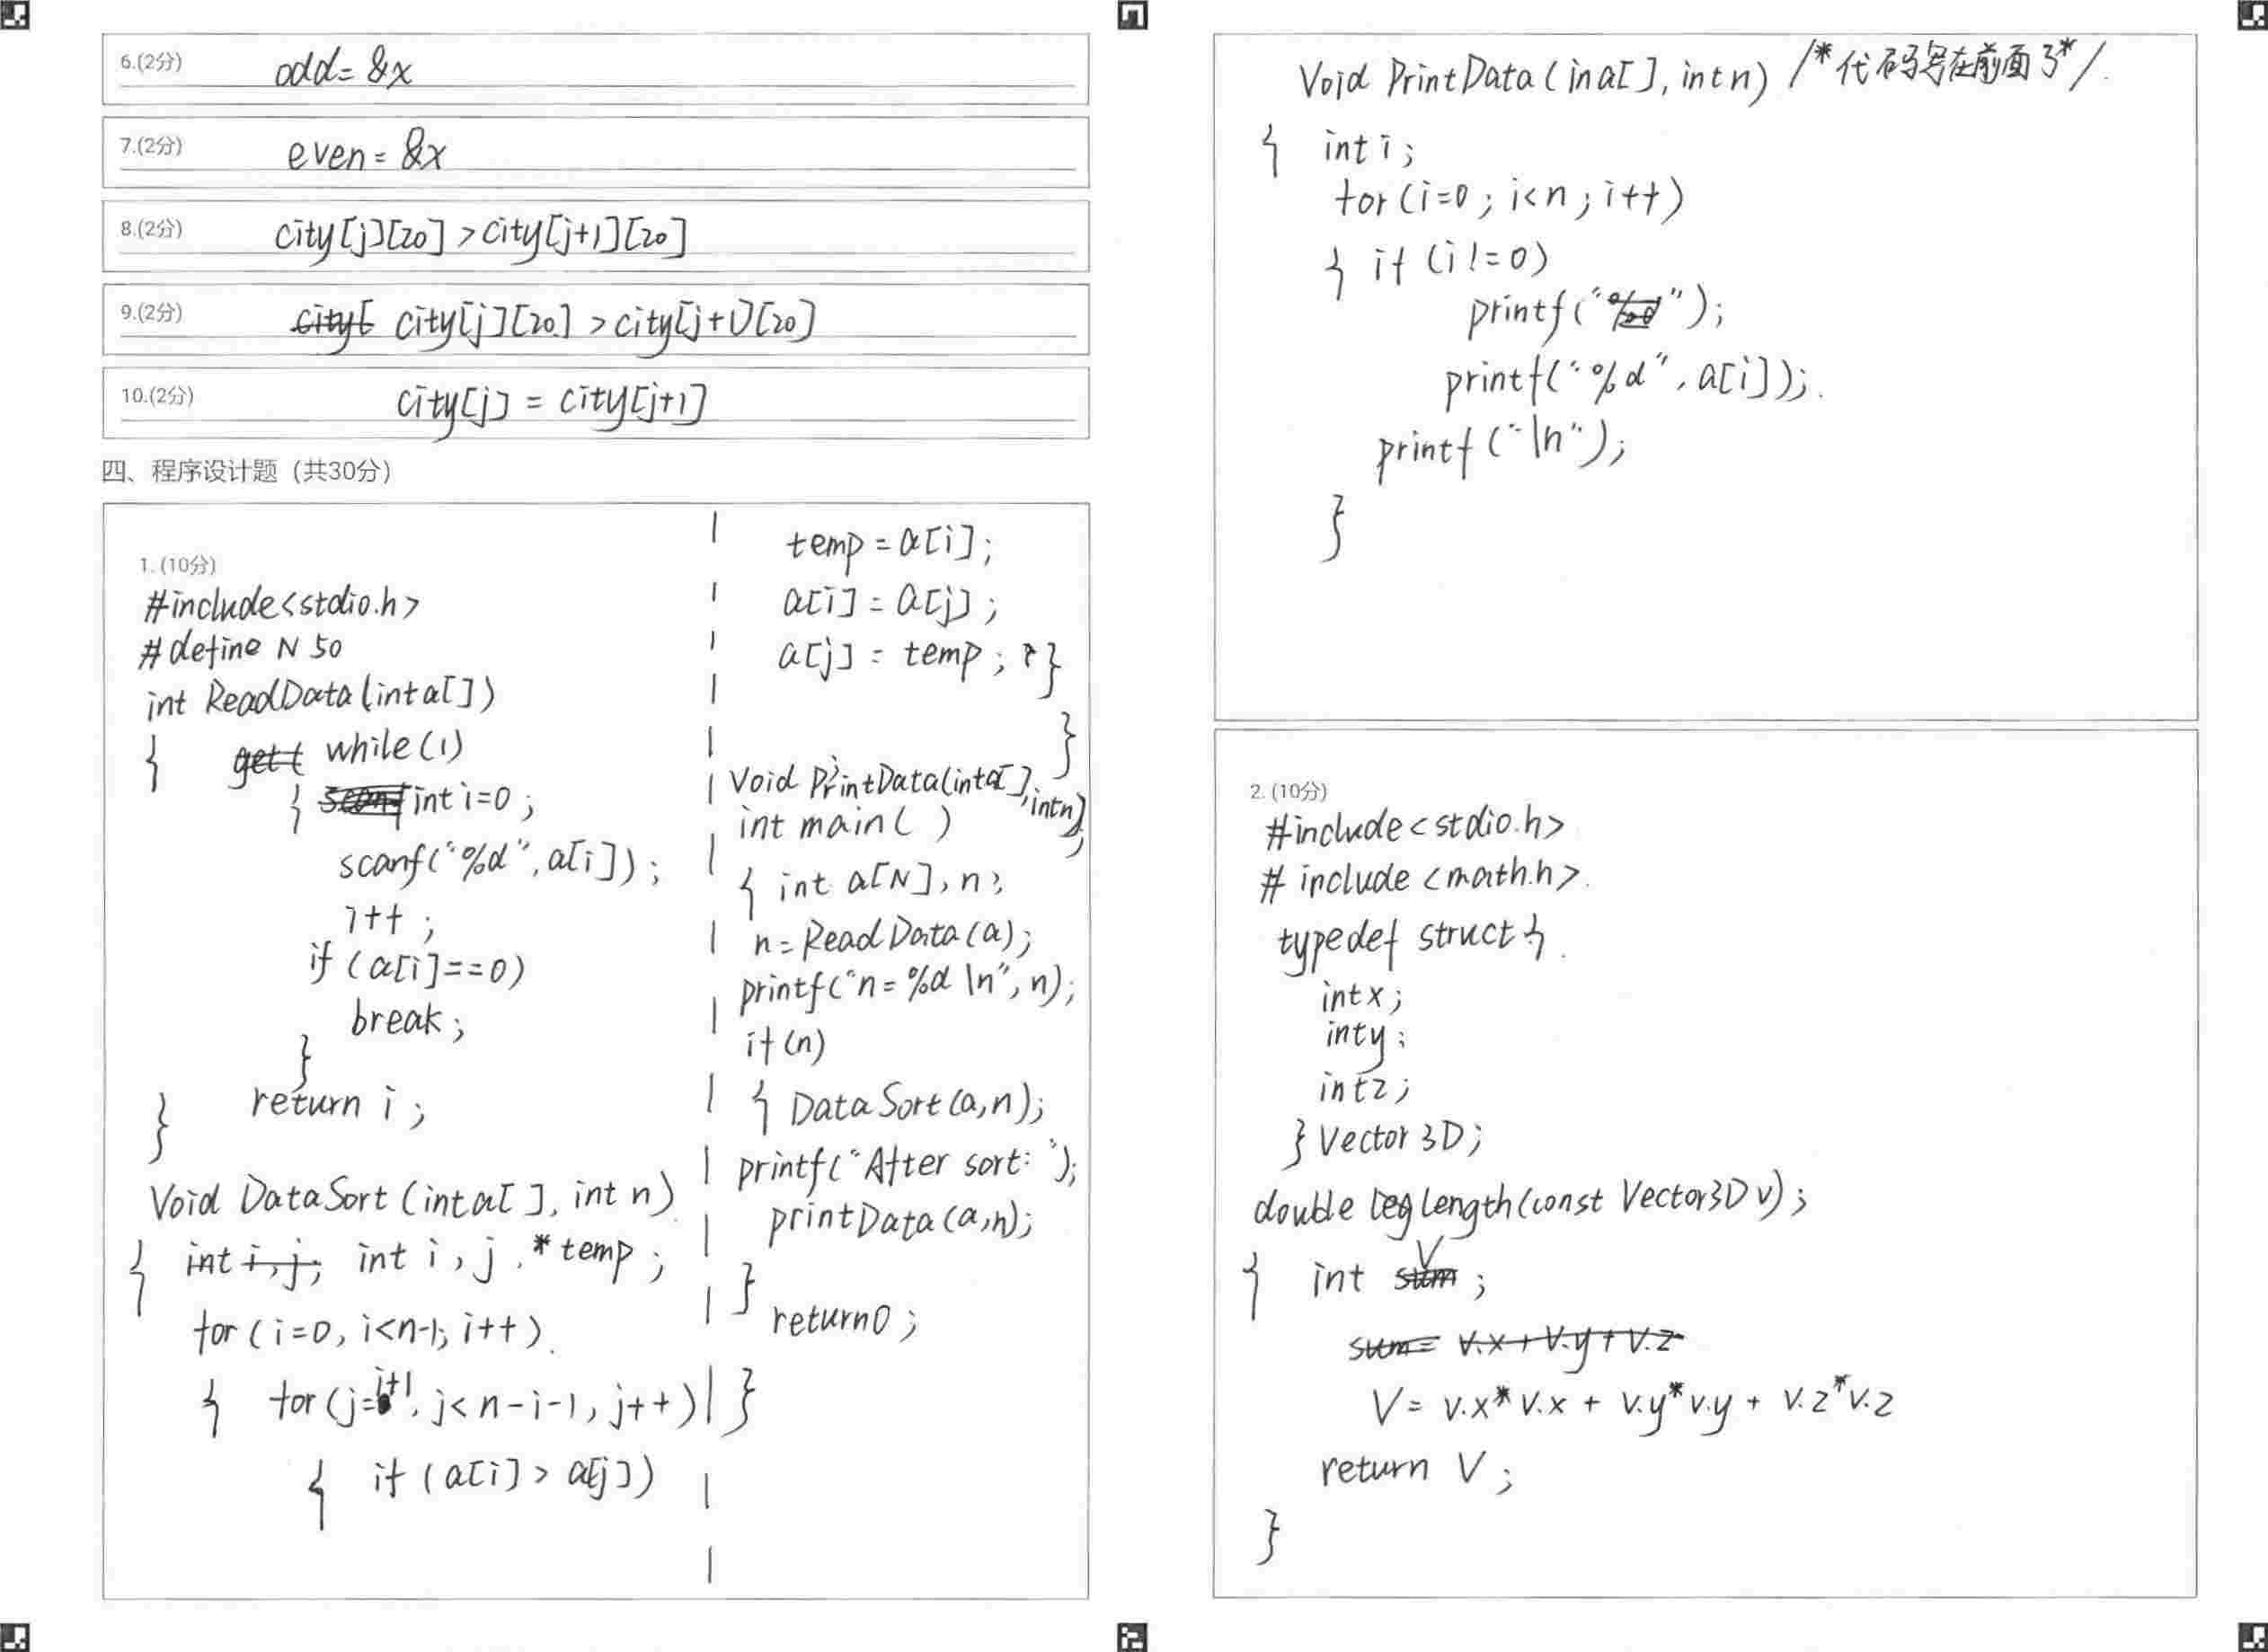 6.(2分) odd= &x
7.(2分) even= &x
8.(2分) city[j][20] > city[j+1][20]
9.(2分) city[ city[j][20] > city[j+1][20]
10.(2分) city[j] = city[j+1]
四、程序设计题（共30分）
1. (10分)
#include<stdio.h>
#define N 50
int ReadData(int a[])
{ get( while(1)
{ scanf int i=0;
scanf("%d", a[i]);
i++;
if (a[i]==0)
break;
}
return i;
}
Void DataSort(int a[], int n)
{ int i, j; int i, j, *temp;
for (i=0, i<n-1; i++)
{ for (j=i+1, j<n-i-1, j++)
{ if (a[i] > a[j])
temp = a[i];
a[i] = a[j];
a[j] = temp; }
}
Void PrintData(int a[], int n);
int main( )
{ int a[N], n;
n=ReadData(a);
printf("n=%d \n", n);
if (n)
{ DataSort(a,n);
printf("After sort: ");
printData(a,n);
}
return 0;
}
Void PrintData(in a[], int n) /*代码写在前面了*/
{ int i;
for (i=0; i<n; i++)
{ if (i!=0)
printf("%d");
printf("%d", a[i]);
printf("\n");
}
2. (10分)
#include<stdio.h>
# include <math.h>
typedef struct {
int x;
int y;
int z;
} Vector3D;
double legLength(const Vector3D v);
{ int sum V;
sum= v.x+v.y+v.z
V= v.x*v.x + v.y*v.y + v.z*v.z
return V;
}